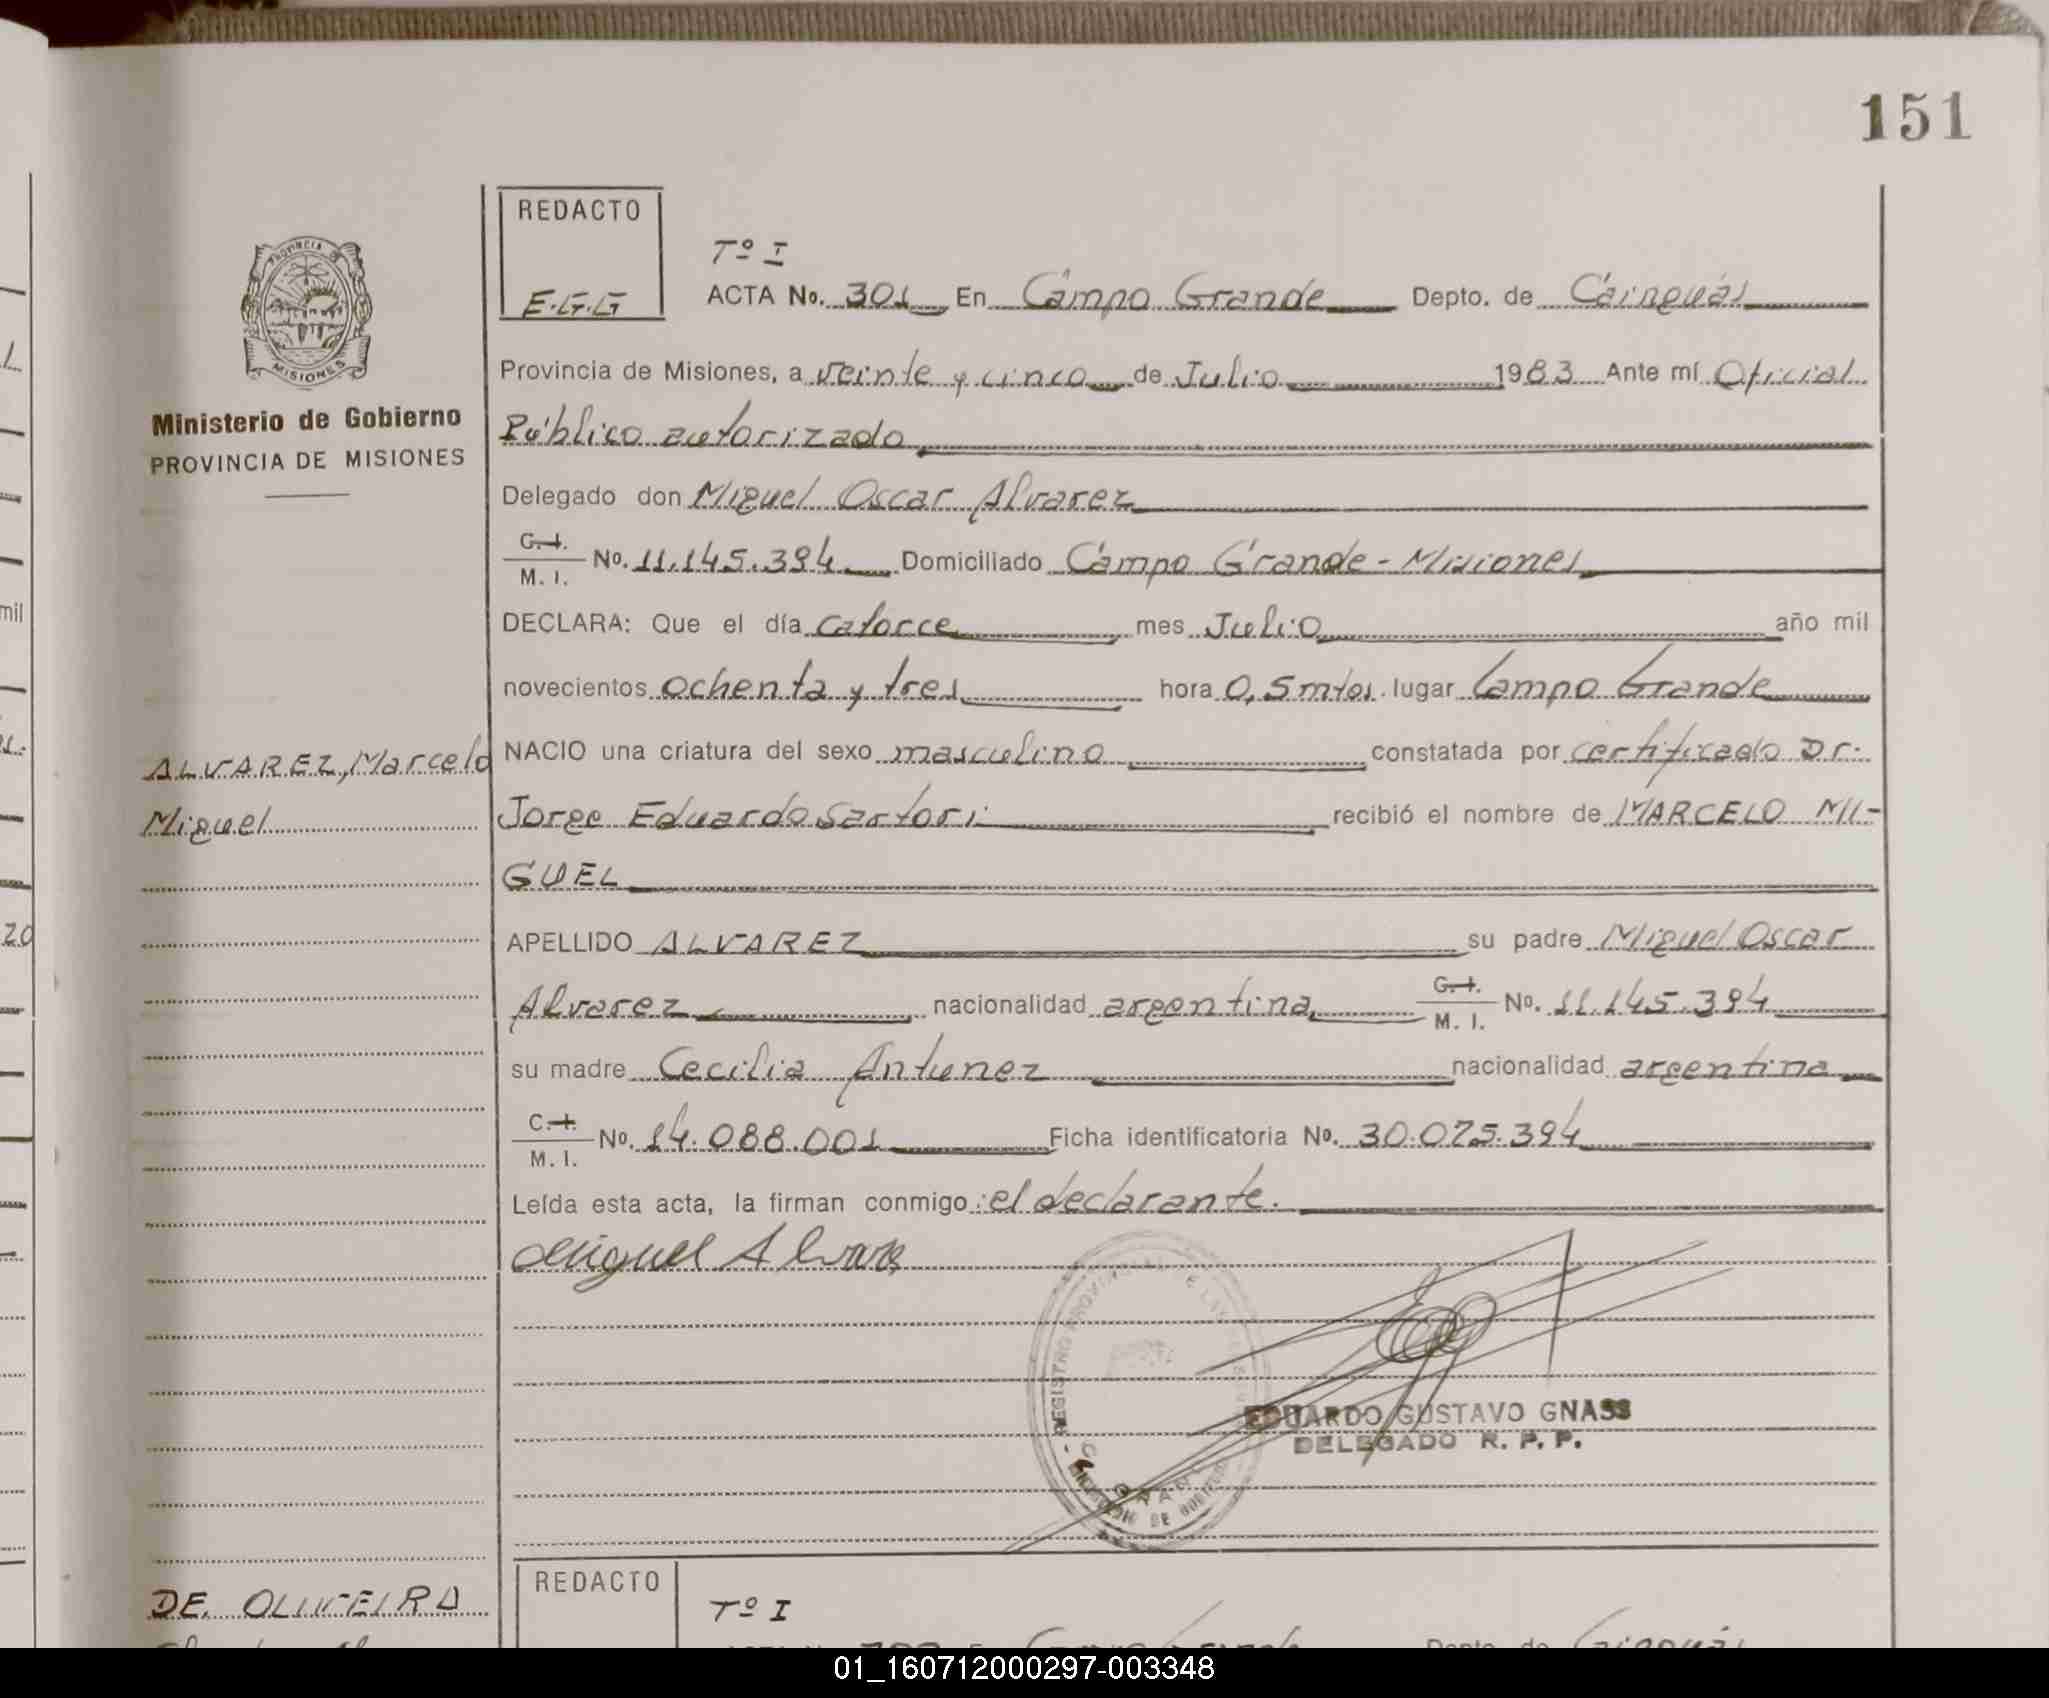 151
REDACTO
E.G.G
Tº I
ACTA No. 301 En Campo Grande Depto. de Cainguás
Provincia de Misiones, a veinte y cinco de Julio 1983 Ante mí Oficial
Público autorizado
Delegado don Miguel Oscar Alvarez
C.I.
M. I. No. 11.145.394 Domiciliado Campo Grande - Misiones
DECLARA: Que el día catorce mes Julio año mil
novecientos ochenta y tres hora 0,5 mtos. lugar Campo Grande
NACIO una criatura del sexo masculino constatada por certificado Dr.
Jorge Eduardo Sartori recibió el nombre de MARCELO MI-
GUEL
APELLIDO ALVAREZ su padre Miguel Oscar
Alvarez nacionalidad argentina C.I.
M. I. No. 11.145.394
su madre Cecilia Antunez nacionalidad argentina
C.I.
M. I. No. 14.088.001 Ficha identificatoria No. 30.075.394
Leída esta acta, la firman conmigo: el declarante.
Miguel Alvarez
EDUARDO GUSTAVO GNASS
DELEGADO R. P. P.
PROVINCIA
MISIONES
Ministerio de Gobierno
PROVINCIA DE MISIONES
ALVAREZ, Marcelo
Miguel
DE OLIVEIRA
REDACTO
Tº I
mil
20
01_160712000297-003348